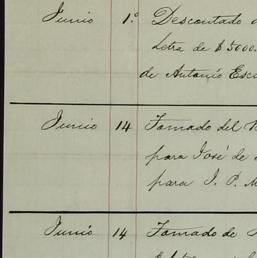 Junio 1.º Descontado
Letra de $ 5000.
de Antonio
Junio 14 Tomado del
para José de
para J. P.
Junio 14 Tomado de